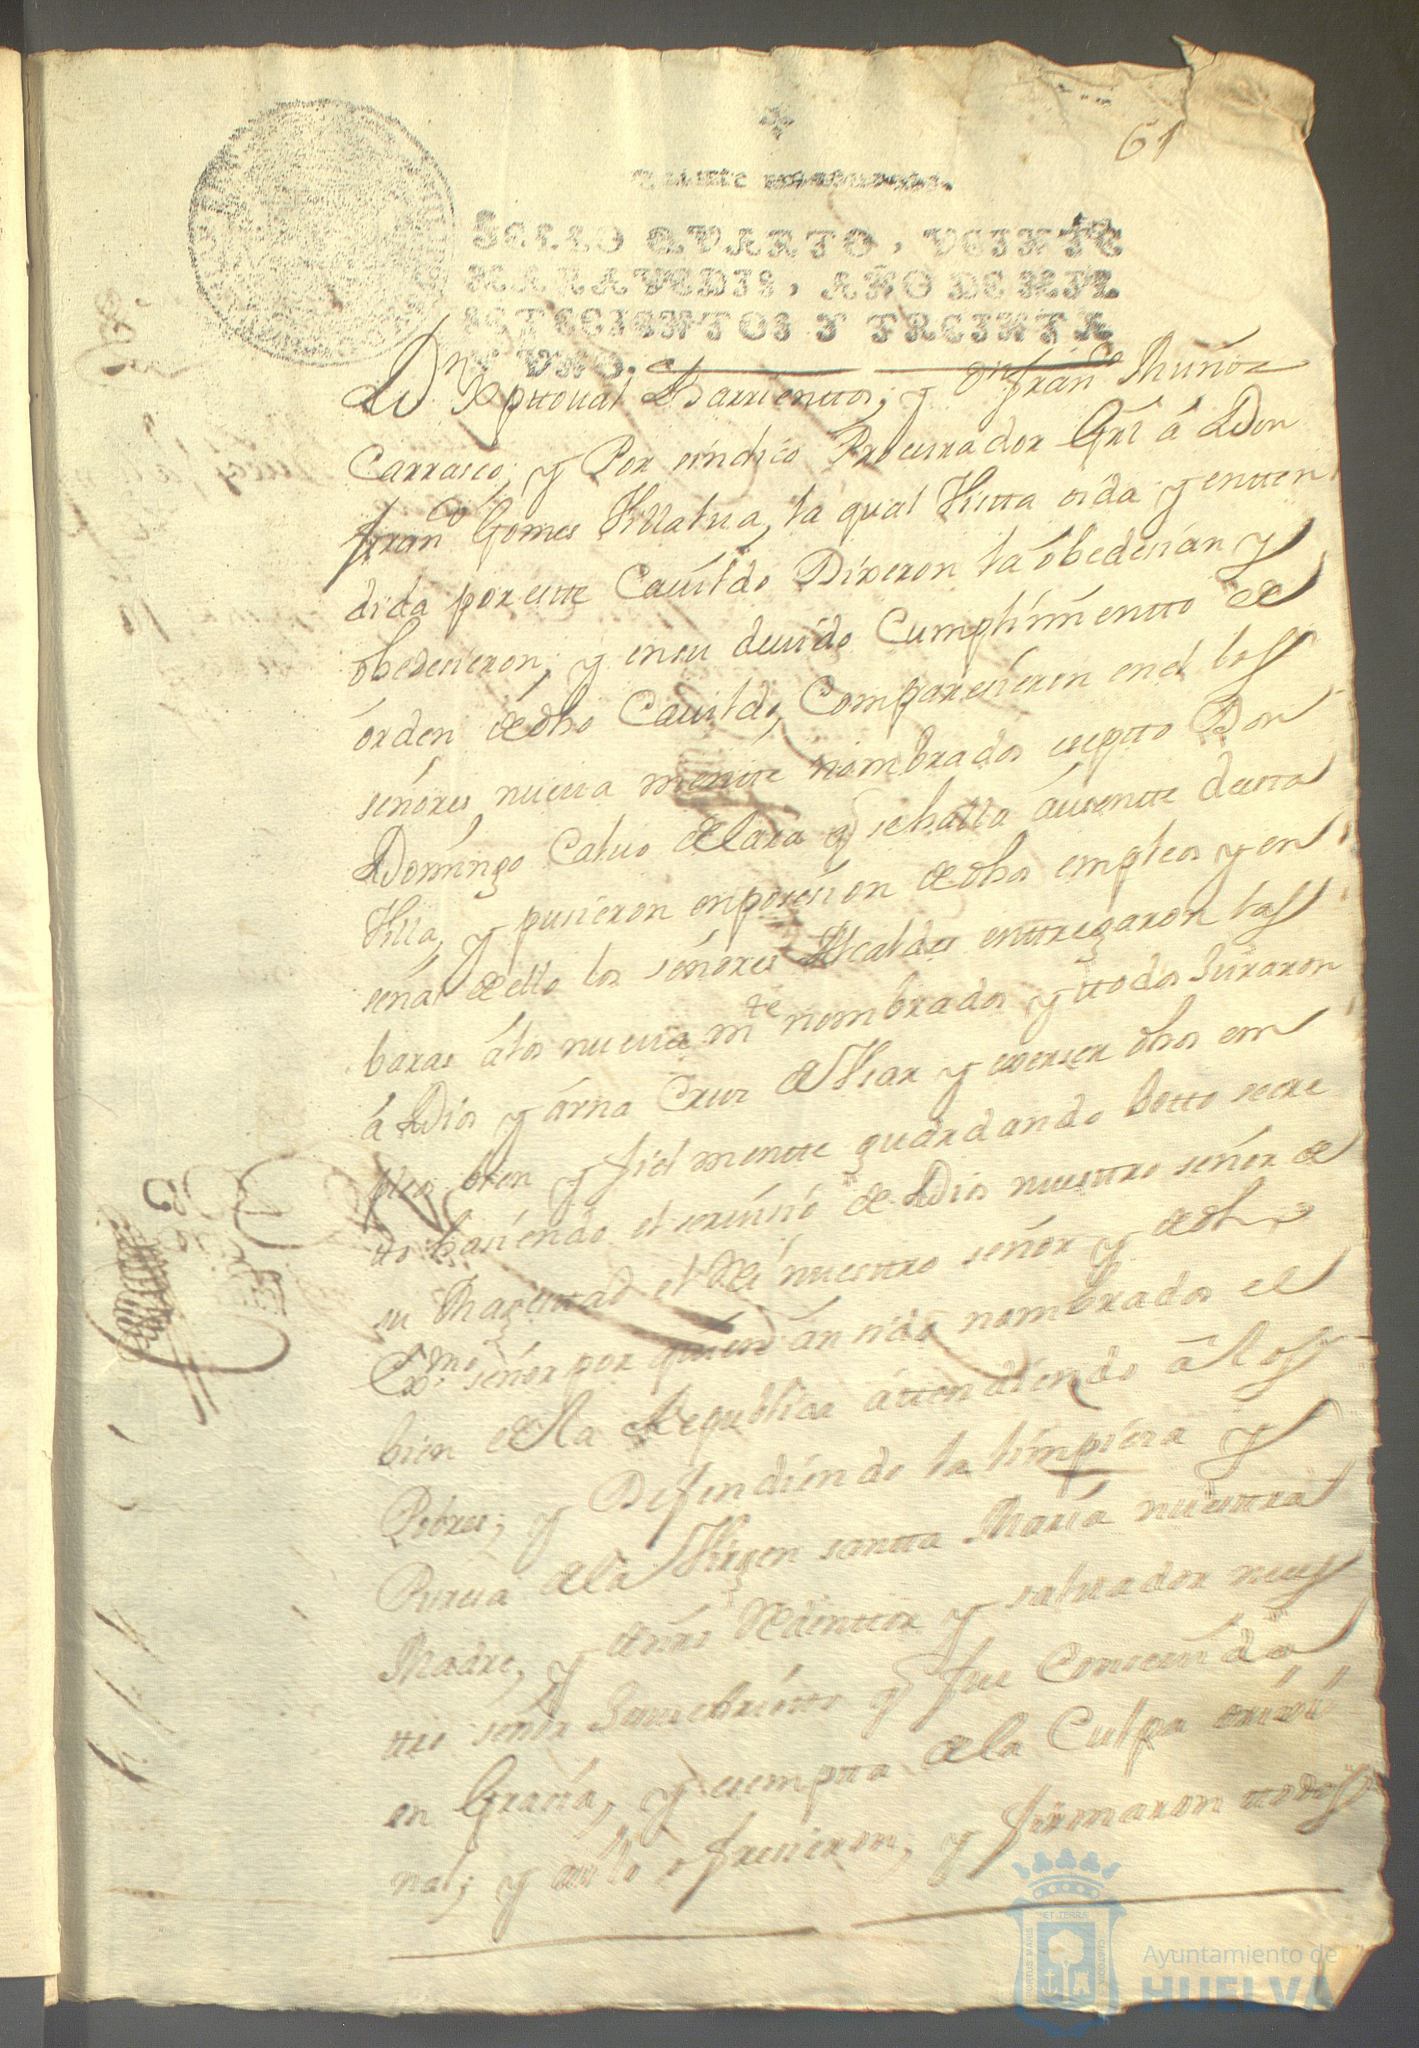 61
SELLO QVARTO, VEINTE
MARAVEDIS, AÑO DE MIL
SETECIENTOS Y TREINTA
Y VNO.
Dn Xpttoual Barrienttos; y Dn Franco Muñoz
Carrasco; y Por sindico Procurador Grl â Don
Franco Gomes Villalua, la qual Vistta oida y entten
dida por estte Cauildo Dixeron la ôbedesian y
obedesieron; y en su deuido Cumplimientto de
órden de dho Cauildo, Comparesieron en el los
señores nueua mentte nombrados eseptto Don
Domingo Caluo de Lara q se halla âusentte destta
Villa, y pusieron en posesion de dhos empleos y en
señal de ello los señores Alcaldes enttregaron las
baras â los nueua mte nombrados y ttodos Juraron
â Dios y âuna Cruz de Vsar y exerser dhos em
pleos bien y fiel mentte guardando botto secre
tto hasiendo el seruisio de Dios nuesttro señor de
su Magesttad el Rei nuesttro señor y de dho
Exmo señor por quien an sido nombrados el
bien de la Republica âttendiendo â los
Pobres; y Defendiendo la limpiesa y
Puresa de la Virgen santta Maria nuesttra
Madre, y de nro Redenttor y saluador nues
ttro señor Jesuchristto q fue Conseuida
en Grasia, y esemptta de la Culpa orixi
nal; y asi lo ofresieron; y firmaron ttodos
PORTUS MARIS
ET TERRA
CUSTODIA
Ayuntamiento de
HUELVA